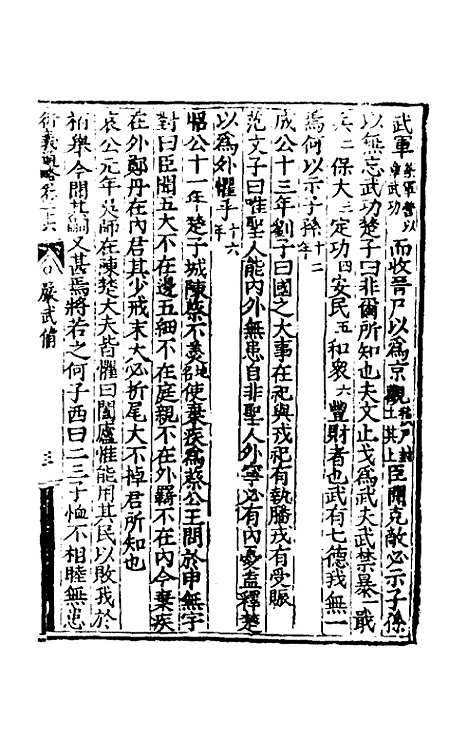 武軍築軍營以章武功而收晉尸以為京觀積尸封土其上臣聞克敵必示子孫
以無忘武功楚子曰非爾所知也夫文止戈為武夫武禁暴一戢
兵二保大三定功四安民五和衆六豐財者也武有七德我無一
焉何以示子孫十二年
成公十三年劉子曰國之大事在祀與戎祀有執膰戎有受脤
范文子曰唯聖人能內外無患自非聖人外寧必有內憂盍釋楚
以為外懼乎十六年
昭公十一年楚子城陳蔡不羹地名使棄疾為蔡公王問於申無宇
對曰臣聞五大不在邊五細不在庭親不在外羈不在內今棄疾
在外鄭丹在內君其少戒末大必折尾大不掉君所知也
哀公元年吳師在陳楚大夫皆懼曰闔廬惟能用其民以敗我於
柏舉今聞其嗣又甚焉將若之何子西曰二三子恤不相睦無患
衍義 略卷二十六 嚴武備 三